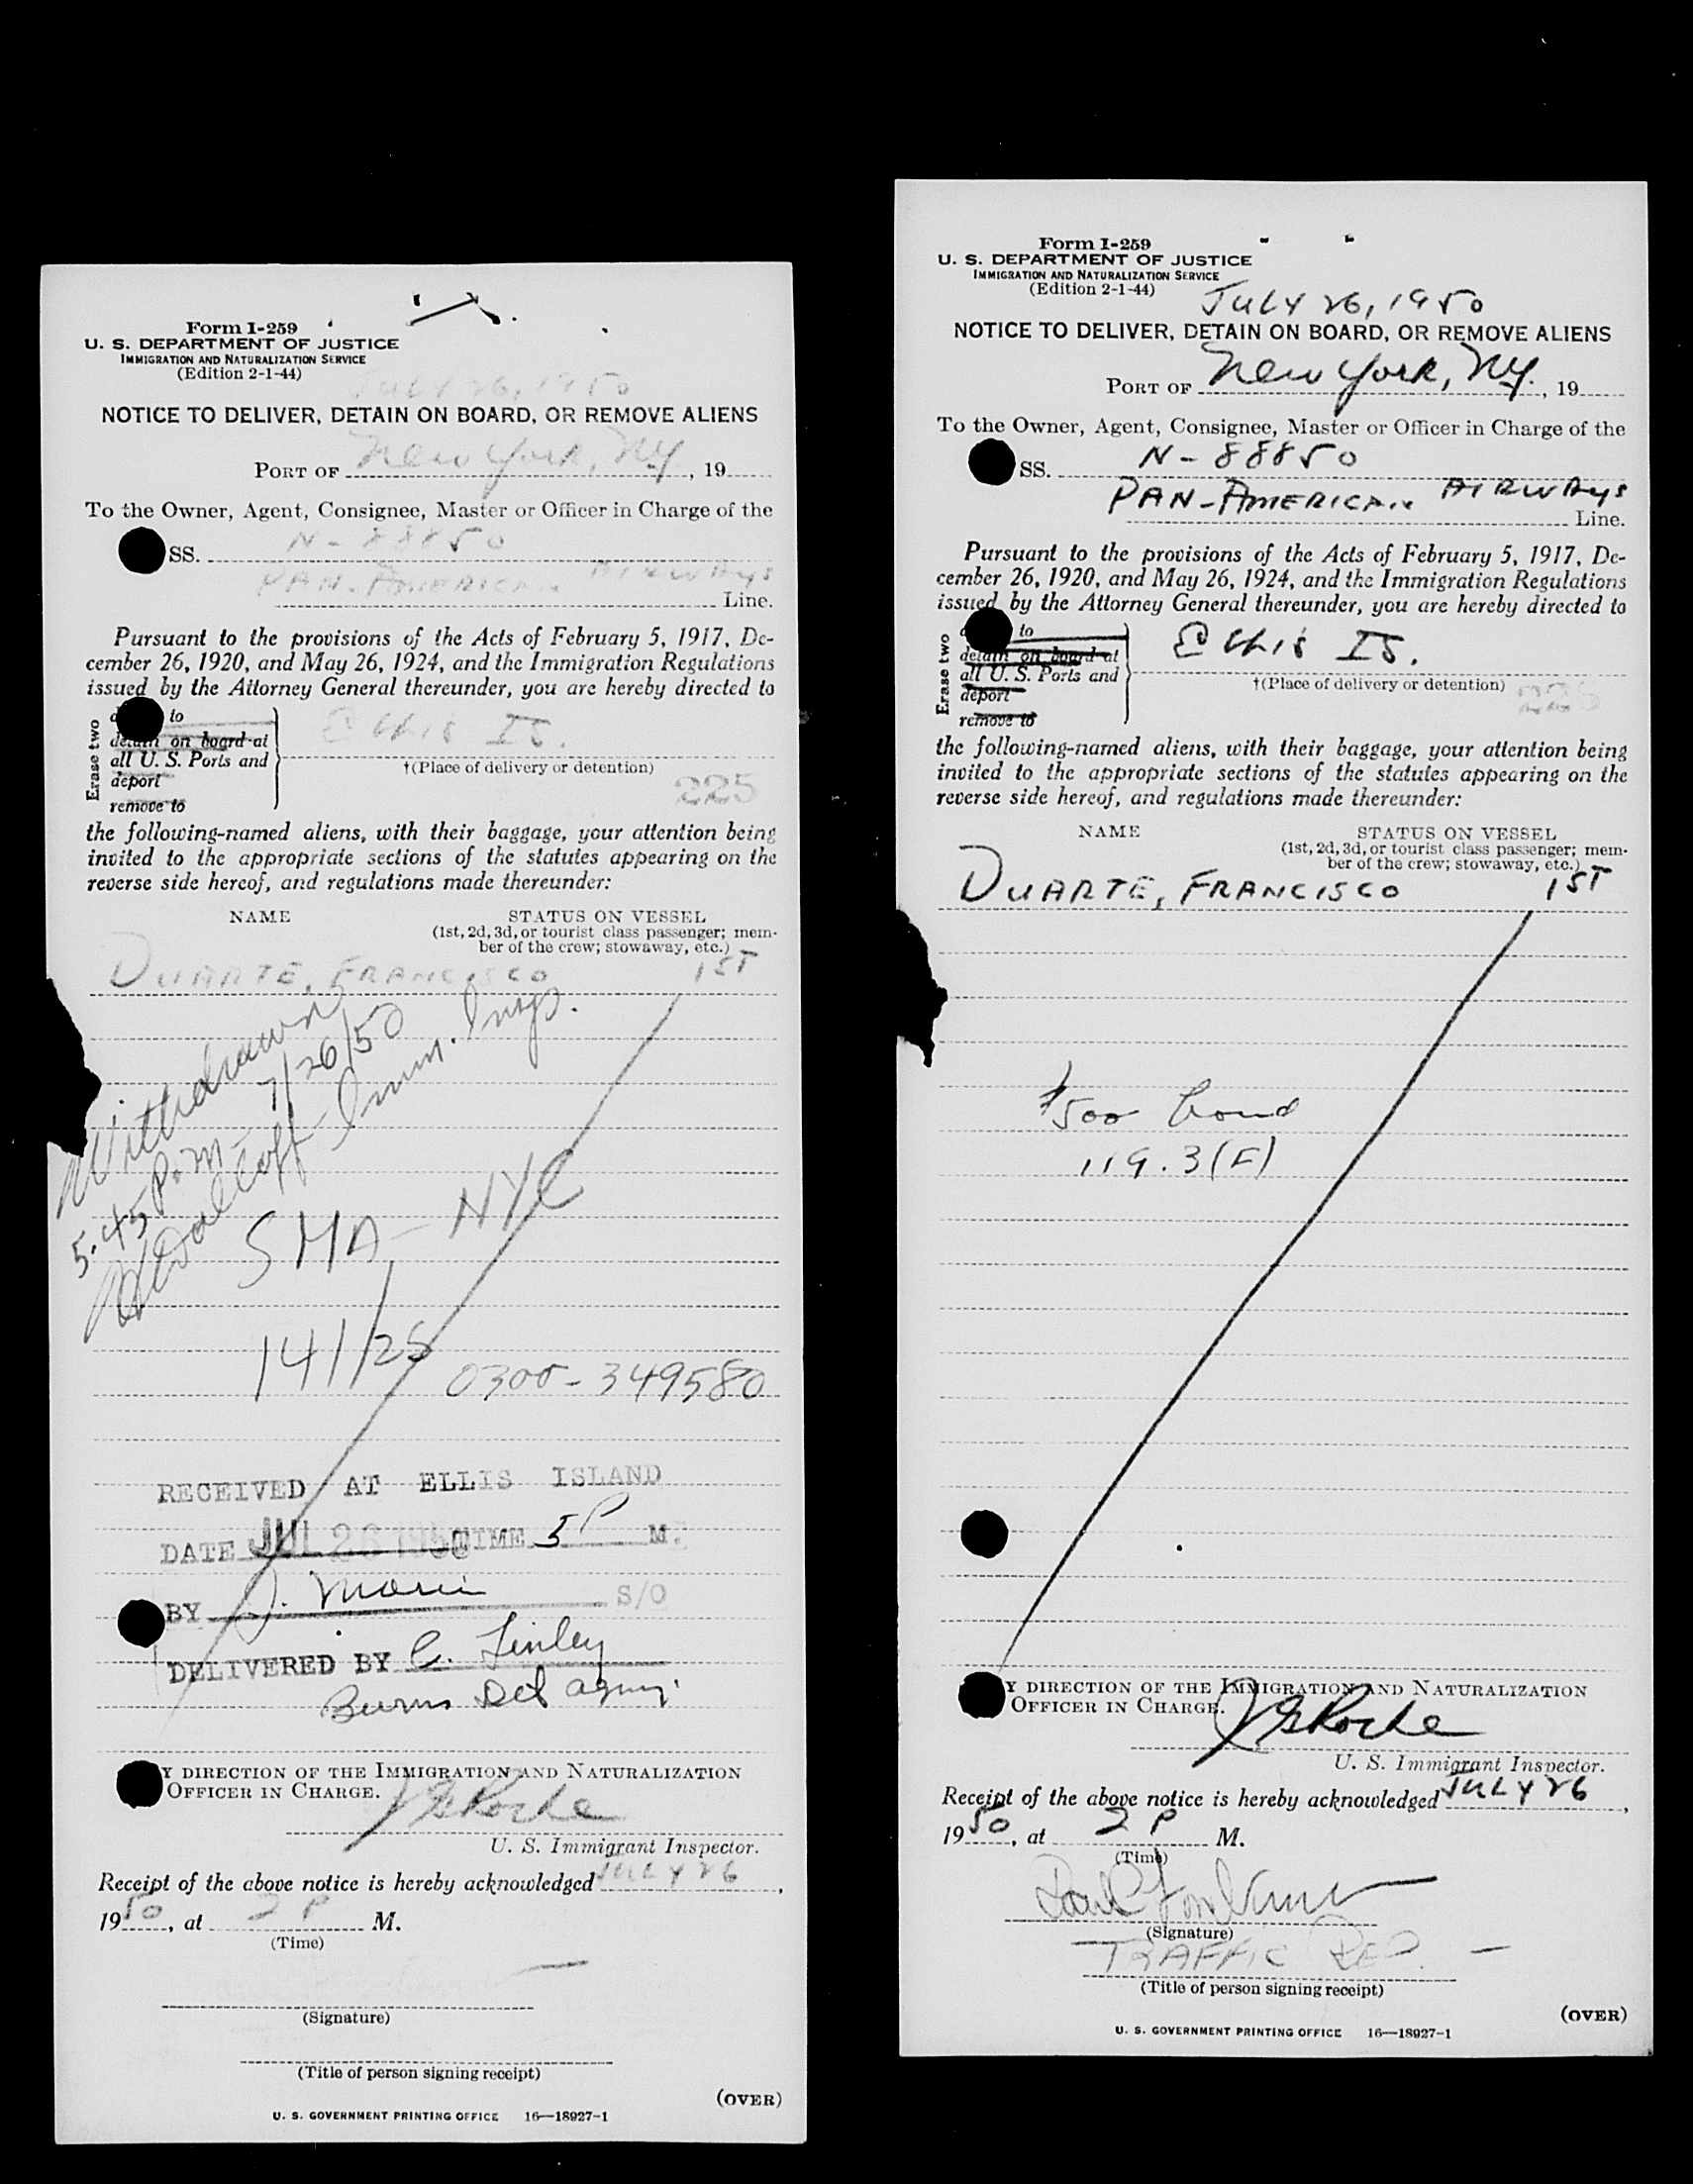 Form I-259
U. S. DEPARTMENT OF JUSTICE
IMMIGRATION AND NATURALIZATION SERVICE
(Edition 2-1-44)
JULY 26, 1950
NOTICE TO DELIVER, DETAIN ON BOARD, OR REMOVE ALIENS
PORT OF New York, NY., 19
To the Owner, Agent, Consignee, Master or Officer in Charge of the
SS. N-88850
PAN-AMERICAN AIRWAYS
Line.
Pursuant to the provisions of the Acts of February 5, 1917, De-
cember 26, 1920, and May 26, 1924, and the Immigration Regulations
issued by the Attorney General thereunder, you are hereby directed to
Erase two
to
detain on board at
all U. S. Ports and
deport
remove to
Ellis Is.
†(Place of delivery or detention)
225
the following-named aliens, with their baggage, your attention being
invited to the appropriate sections of the statutes appearing on the
reverse side hereof, and regulations made thereunder:
NAME STATUS ON VESSEL
(1st, 2d, 3d, or tourist class passenger; mem-
ber of the crew; stowaway, etc.)
DUARTE, FRANCISCO 1ST
Withdrawn
5.45 P.M. 7/26/50
Imm. Insp.
SMA-NYC
141/25
0300-349580
RECEIVED AT ELLIS ISLAND
DATE JUL 26 1950 TIME 5 P M.
BY J. S/O
DELIVERED BY C. Finley
Burns Det agency
Y DIRECTION OF THE IMMIGRATION AND NATURALIZATION
OFFICER IN CHARGE.
Roche
U. S. Immigrant Inspector.
Receipt of the above notice is hereby acknowledged JULY 26,
1950, at 2 P M.
(Time)
(Signature)
(Title of person signing receipt)
(OVER)
U. S. GOVERNMENT PRINTING OFFICE 16—18927-1
Form I-259
U. S. DEPARTMENT OF JUSTICE
IMMIGRATION AND NATURALIZATION SERVICE
(Edition 2-1-44)
JULY 26, 1950
NOTICE TO DELIVER, DETAIN ON BOARD, OR REMOVE ALIENS
PORT OF New York, NY., 19
To the Owner, Agent, Consignee, Master or Officer in Charge of the
SS. N-88850
PAN-AMERICAN AIRWAYS
Line.
Pursuant to the provisions of the Acts of February 5, 1917, De-
cember 26, 1920, and May 26, 1924, and the Immigration Regulations
issued by the Attorney General thereunder, you are hereby directed to
Erase two
to
detain on board at
all U. S. Ports and
deport
remove to
Ellis Is.
†(Place of delivery or detention)
225
the following-named aliens, with their baggage, your attention being
invited to the appropriate sections of the statutes appearing on the
reverse side hereof, and regulations made thereunder:
NAME STATUS ON VESSEL
(1st, 2d, 3d, or tourist class passenger; mem-
ber of the crew; stowaway, etc.)
DUARTE, FRANCISCO 1ST
$500 bond
119.3(F)
Y DIRECTION OF THE IMMIGRATION AND NATURALIZATION
OFFICER IN CHARGE.
Roche
U. S. Immigrant Inspector.
Receipt of the above notice is hereby acknowledged JULY 26,
1950, at 2 P M.
(Time)
(Signature)
TRAFFIC REP.
(Title of person signing receipt)
(OVER)
U. S. GOVERNMENT PRINTING OFFICE 16—18927-1